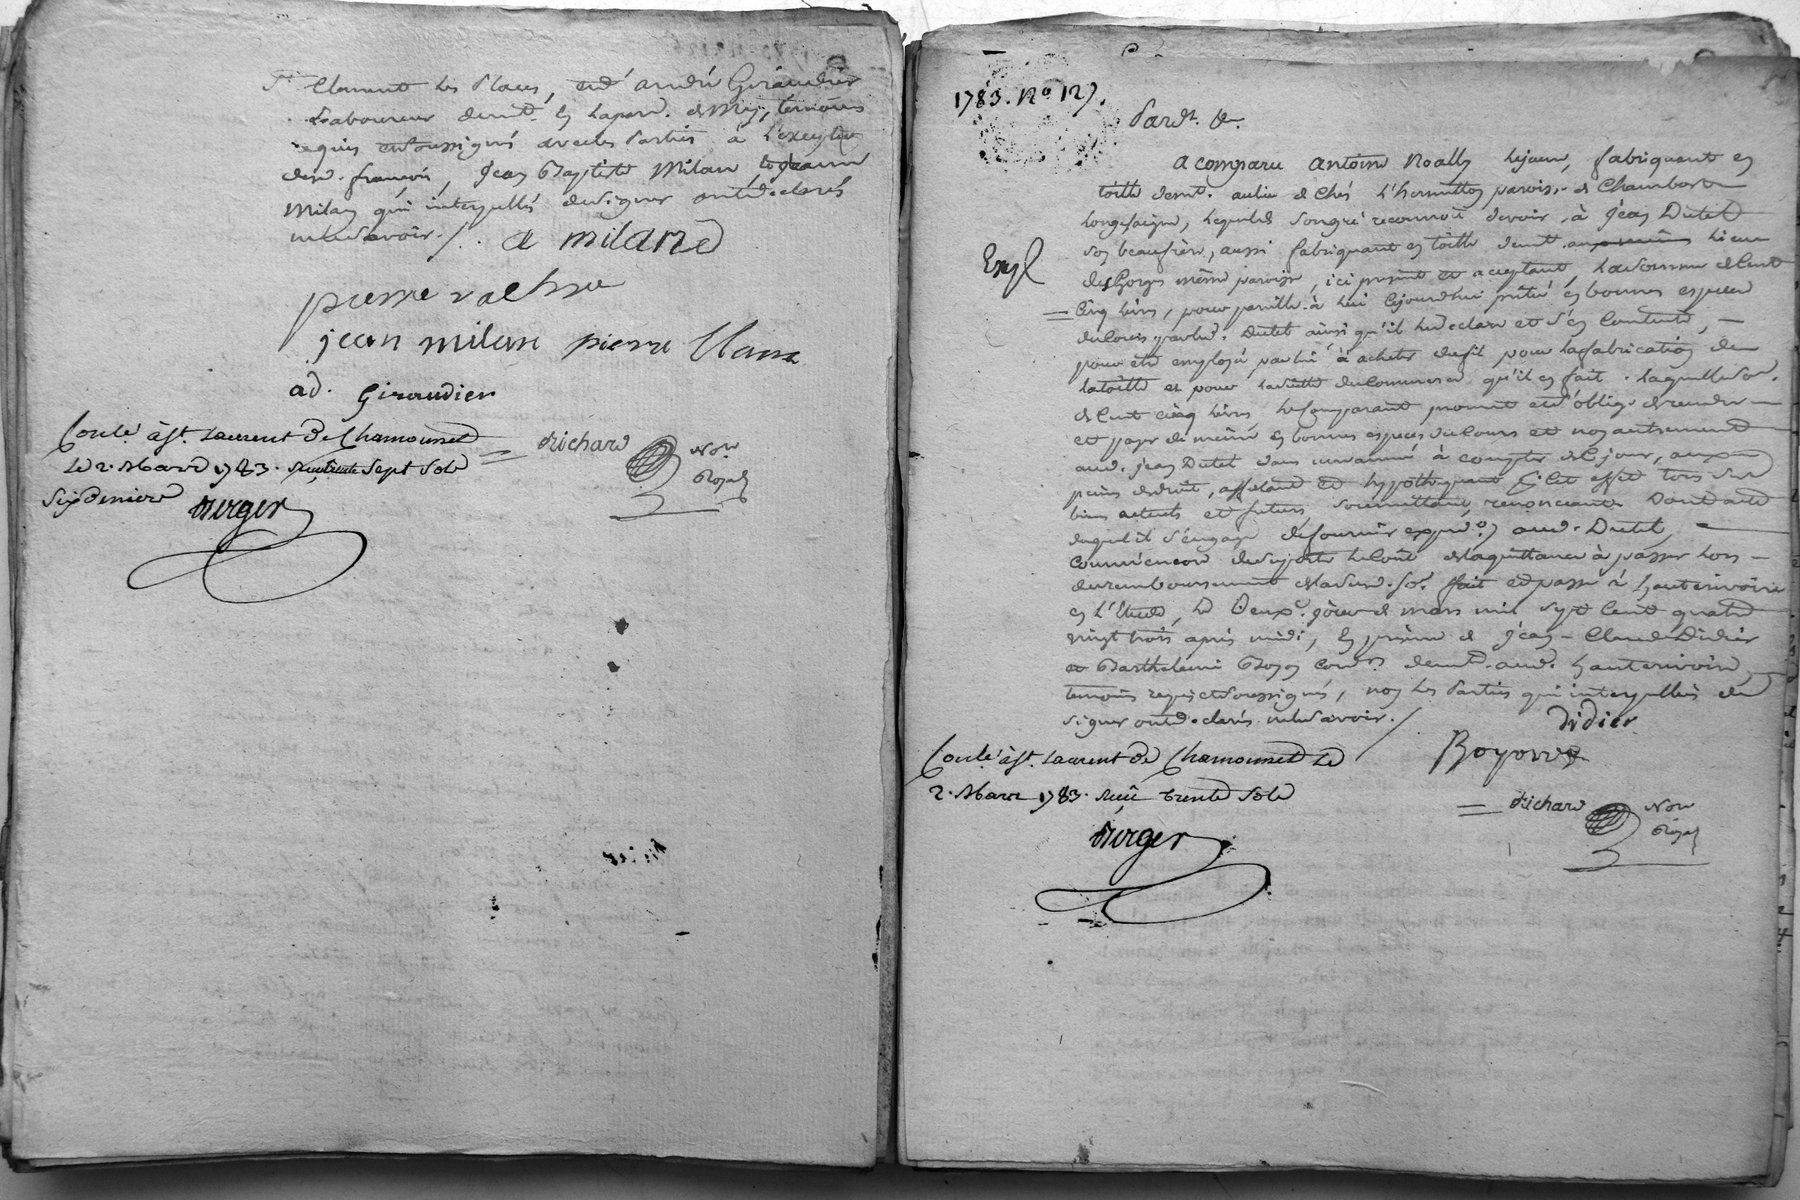 St Clement les places, et d'andré Giraudier
Laboureur demt. en laparr. de Mey, temoins
requis et soussignés avec les parties à l'exception
desd. françois, Jean Baptiste Milan et Jeanne
Milan qui interpellés de signer ont declarés
ne le savoir./.
a miland
pierre
jean milan pierre
ad. Giraudier
Conlé à St. Laurent de Chamousset
le 2. Mars 1783. Sept Sols
Six deniers
Berger
Richard Nore Royal
1783. No. 127.
Pardt. &c.
a comparu antoine Noally lejeune, fabriquant en
toille demt. au lieu de chés L'hermitton paroisse de Chambost
Longesaigne, lequel de son gré reconnoit devoir à Jean Dutel
son beaufrère, aussi fabriquant en toille demt. lieu
Exp
des Gorges même paroisse, ici present et acceptant, la somme de Cent
Cinq livres, pour pareille à lui cejourd'hui prêtée en bonnes especes
du cours par led. Dutel ainsi qu'il le declare et s'en contente,
pour etre employée par lui à acheter du fil pour la fabrication de
la toille et pour la suitte du commerce qu'il en fait. laquelle so.
de cent cinq livres le comparant promet et s'oblige de rendre
et payer de même en bonnes especes du cours et non autrement
aud. jean Dutel dans une année à compter de ce jour, aux
peines de droit, affectant et hypothequant à cet effet tous ses
biens actuels et futurs, soumettant, renonceant. Dont acte
duquel il s'engage de fournir expedon. aud. Dutel,
comm'encore de suporter le coût de la quittance à passer lors
du remboursement de lad. so. fait et passé à hauterivoire
en l'Etude, le Deuxe. jour de mars mil sept cent quatre
vingt trois après midi, en présence de Jean Claude Didier
et Barthelemi Boyon cord. demt. aud. hauterivoire
temoins requis et soussignés, non les parties qui interpellées de
signer ont declarés ne le savoir./.
Didier
Boyon
Conlé à St. Laurent de Chamousset le
2. Mars 1783. reçu trente Sols
Berger
Richard Nore Royal